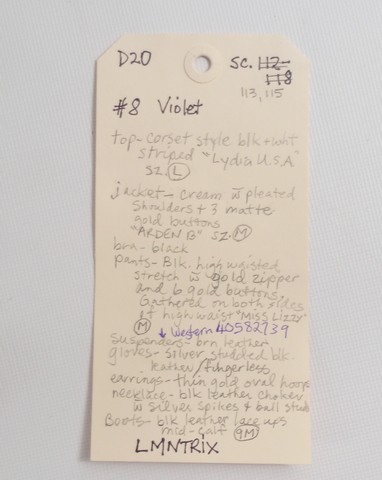 D20
sc. 112
118
113, 115
#8 Violet
top- corset style blk + wht
striped "Lydia U.S.A"
sz. L
jacket- cream w pleated
shoulders + 3 matte
gold buttons
"ARDEN B" sz. M
bra- black
pants- Blk. high waisted
stretch w gold zipper
and 6 gold buttons,
Gathered on both sides
at high waist "MISS LIZZY"
M
↓ Western 40582739
suspenders- brn leather
gloves- silver studded blk.
leather/fingerless
earrings- thin gold oval hoops
necklace- blk leather choker
w silver spikes + ball studs
Boots- blk leather lace ups
mid-calf 9M
LMNTRIX